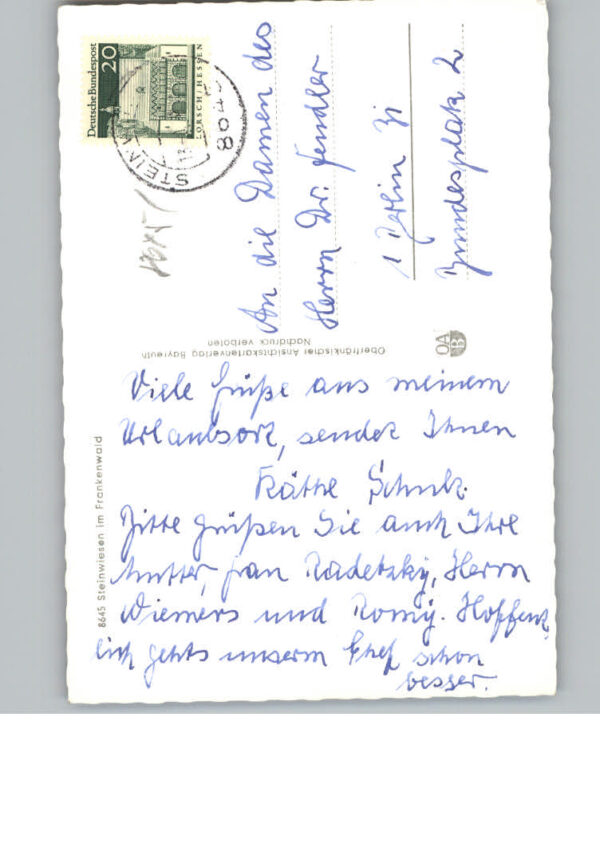 Deutsche Bundespost
20
LORSCH/HESSEN
STEINW
8645
An die Damen des
Herrn Dr. Fendler
1 Berlin 31
Bundesplatz 2
OAB
Oberfränkischer Ansichtskartenverlag Bayreuth
Nachdruck verboten
8645 Steinwiesen im Frankenwald
Viele Grüße aus meinem
Urlaubsort, sendet Ihnen
Käthe Schulz.
Bitte grüßen Sie auch Ihre
Mutter, Frau Radetzky, Herrn
Wiemers und Romy. Hoffent
lich gehts unserm Chef schon
besser.